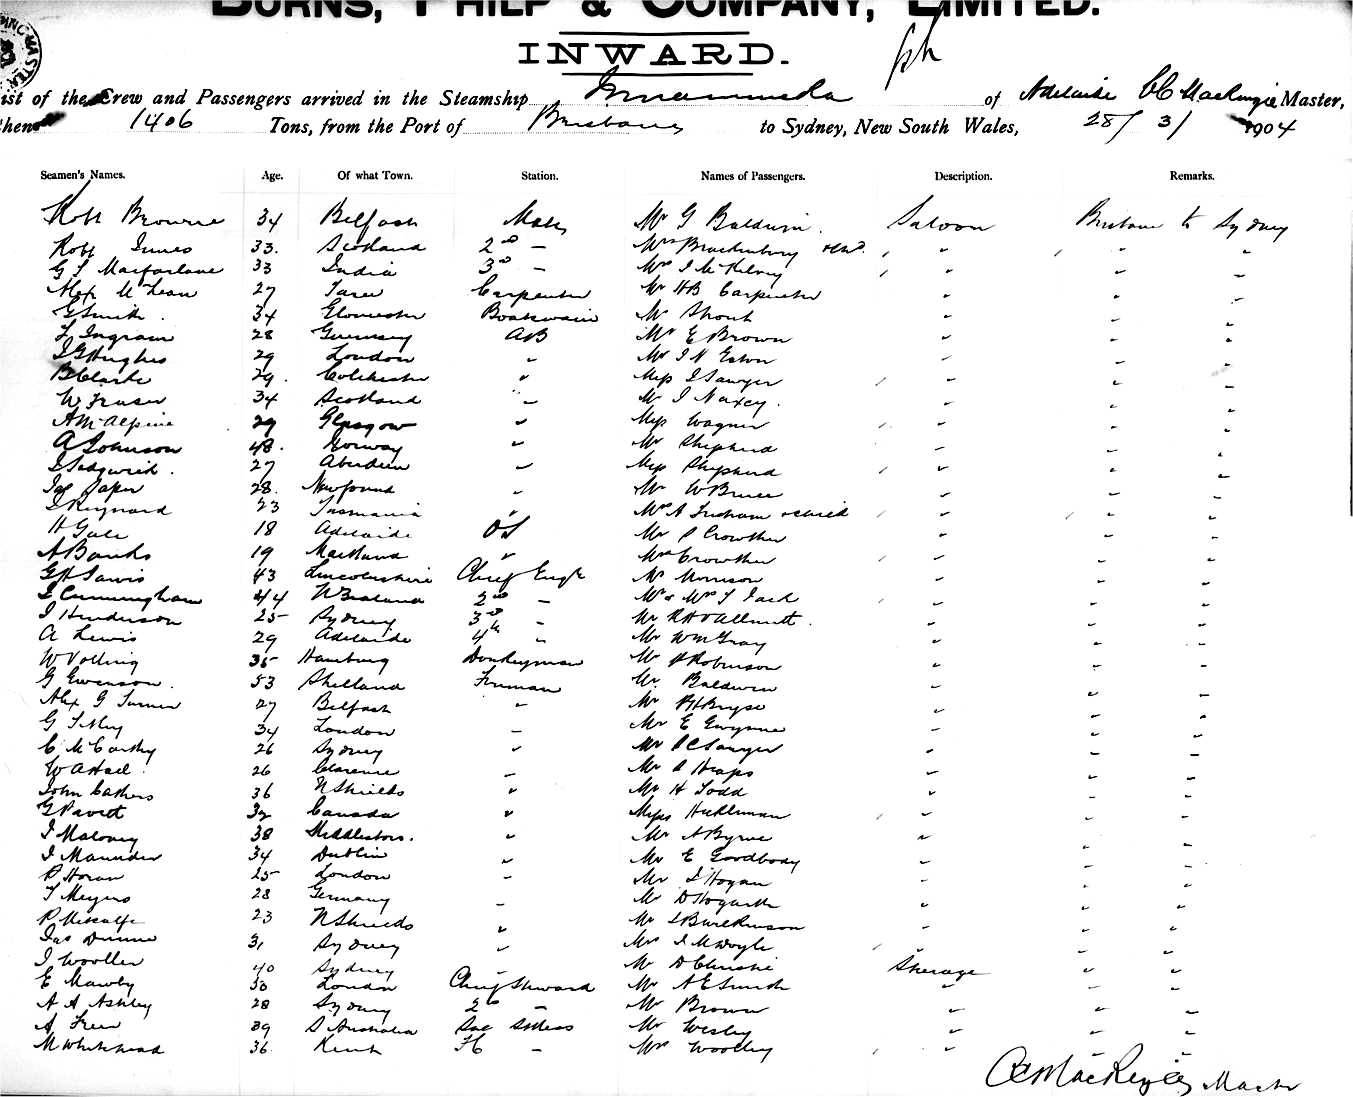 BURNS, PHILP & COMPANY, LIMITED.
INWARD.
ist of the Crew and Passengers arrived in the Steamship Innamincka of Adelaide CC Mackenzie Master,
hen 1406 Tons, from the Port of Brisbane to Sydney, New South Wales, 28/ 3/ 1904
Seamen's Names. Age. Of what Town. Station. Names of Passengers. Description. Remarks.
Robt Browne 34 Belfast Mate Mr G Baldwin. Saloon Brisbane to Sydney
Robt Innes 33. Scotland 2nd - Mrs Brackenbury " "
G S Macfarlane 33 India 3rd - Mrs J McKelvey " "
Alex McLean 27 Carpenter Mr HB Carpenter " "
G Smith. 34 Gloucester Boatswain Mr Short " "
Ingram 28 Guernsey AB Mr E Brown " "
J G Hughes 29 London " Mr J N Eaton " "
B Clarke 29. Colchester " Miss J Sawyer " "
W Fraser 34 Scotland " Mr J Naxey. " "
A McAlpine 29 Glasgow " Miss Wagner " "
A Johnson 48. Norway " Mr Shepherd " "
J Sedgwick. 27 Aberdeen " Miss Shepherd " "
Jas Soper 28. Newfound " Mr W Bruce " "
J Reynard 23 Tasmania " Mrs A & child " "
H Gale 18 Adelaide OS Mr P Crowther " "
A Banks 19 Maitland " Mrs Crowther " "
G H Lewis 43 Lincolnshire Chief Engr Mr Morrison " "
J Cunningham 44 N Zealand 2nd - Mr & Mrs Jack " "
J Henderson 25 Sydney 3rd " Mr " "
A Lewis 29 Adelaide 4th " Mr W McGray " "
W Volling 35 Hamburg Donkeyman Mr A Robinson " "
G Ewenson. 53 Shetland Fireman Mr Baldwin " "
Alex G Turner 27 Belfast " Mr " "
G 34 London " Mr E Gwynne " "
C McCarthy 26 Sydney " Mr P C Sawyer " "
W A Hall. 26 Clarence " Mr A Heaps " "
John Cathers 36 N Shields " Mr H Todd " "
G Pavett 32 Canada " Misses " "
J Maloney 38 Middlesboro. " Mr A Byrne " "
J Maunder 34 Dublin " Mr E Goodbody " "
P Horan 25 London " Mr J Hogan " "
J Meyers 28 Germany " Mr D Hogarth " "
R Metcalfe 23 N Shields " Mr J Wilkinson " "
Jas Dunne 31 Sydney " Mrs J McDoyle " "
J Wooller 40 Sydney " Mr D Christie Steerage " "
E Mawby 50 London Chief Steward Mr A E Smith " "
A A Ashley 28 Sydney 2nd - Mr Brown " "
A Freer 39 S Australia Mr Wesley " "
M Whitehead 36. Kent FC - Mrs Woolley " "
CC Mackenzie Master